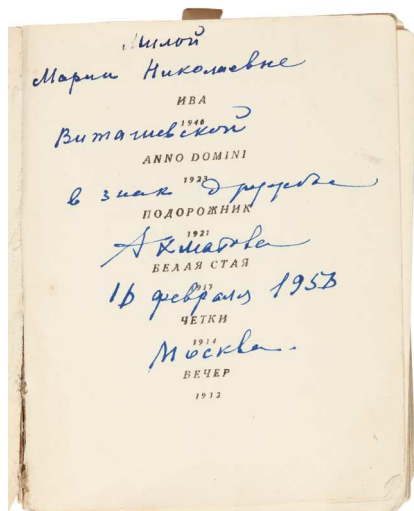 Милой
Марии Николаевне
ИВА
1940
Виташевской
ANNO DOMINI
1923
в знак дружбы
ПОДОРОЖНИК
1921
Ахматова
БЕЛАЯ СТАЯ
1917
16 февраля 1956
ЧЕТКИ
1914
Москва.
ВЕЧЕР
1912